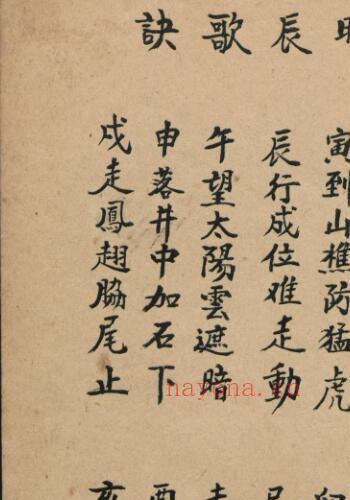 寅到山樵防猛虎
辰
辰行成位难走動
歌
午望太陽雲遮暗
訣
申落井中加石下
戌走鳳翅脇尾止
nayona.cn